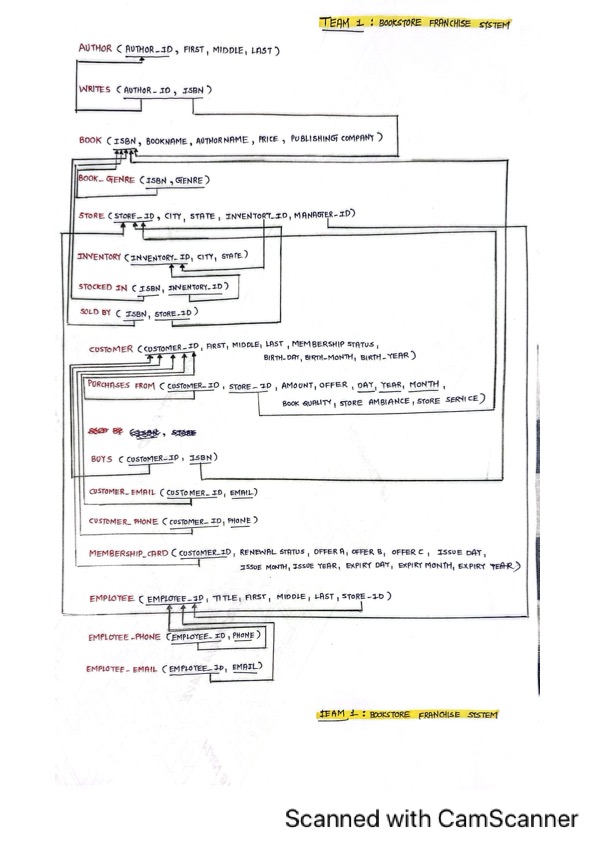 TEAM 1 : BOOKSTORE FRANCHISE SYSTEM
AUTHOR ( AUTHOR_ID, FIRST, MIDDLE, LAST )
WRITES ( AUTHOR_ID, ISBN )
BOOK ( ISBN, BOOKNAME, AUTHORNAME, PRICE, PUBLISHING COMPANY )
BOOK_GENRE ( ISBN, GENRE )
STORE ( STORE_ID, CITY, STATE, INVENTORY_ID, MANAGER_ID )
INVENTORY ( INVENTORY_ID, CITY, STATE )
STOCKED IN ( ISBN, INVENTORY_ID )
SOLD BY ( ISBN, STORE_ID )
CUSTOMER ( CUSTOMER_ID, FIRST, MIDDLE, LAST, MEMBERSHIP STATUS,
BIRTH_DAY, BIRTH_MONTH, BIRTH_YEAR )
PURCHASES FROM ( CUSTOMER_ID, STORE_ID, AMOUNT, OFFER, DAY, YEAR, MONTH,
BOOK QUALITY, STORE AMBIANCE, STORE SERVICE )
SOLD BY ( ISBN, STORE
BUYS ( CUSTOMER_ID, ISBN )
CUSTOMER_EMAIL ( CUSTOMER_ID, EMAIL )
CUSTOMER_PHONE ( CUSTOMER_ID, PHONE )
MEMBERSHIP_CARD ( CUSTOMER_ID, RENEWAL STATUS, OFFER A, OFFER B, OFFER C, ISSUE DAY,
ISSUE MONTH, ISSUE YEAR, EXPIRY DAY, EXPIRY MONTH, EXPIRY YEAR )
EMPLOYEE ( EMPLOYEE_ID, TITLE, FIRST, MIDDLE, LAST, STORE_ID )
EMPLOYEE_PHONE ( EMPLOYEE_ID, PHONE )
EMPLOYEE_EMAIL ( EMPLOYEE_ID, EMAIL )
TEAM 1 : BOOKSTORE FRANCHISE SYSTEM
Scanned with CamScanner